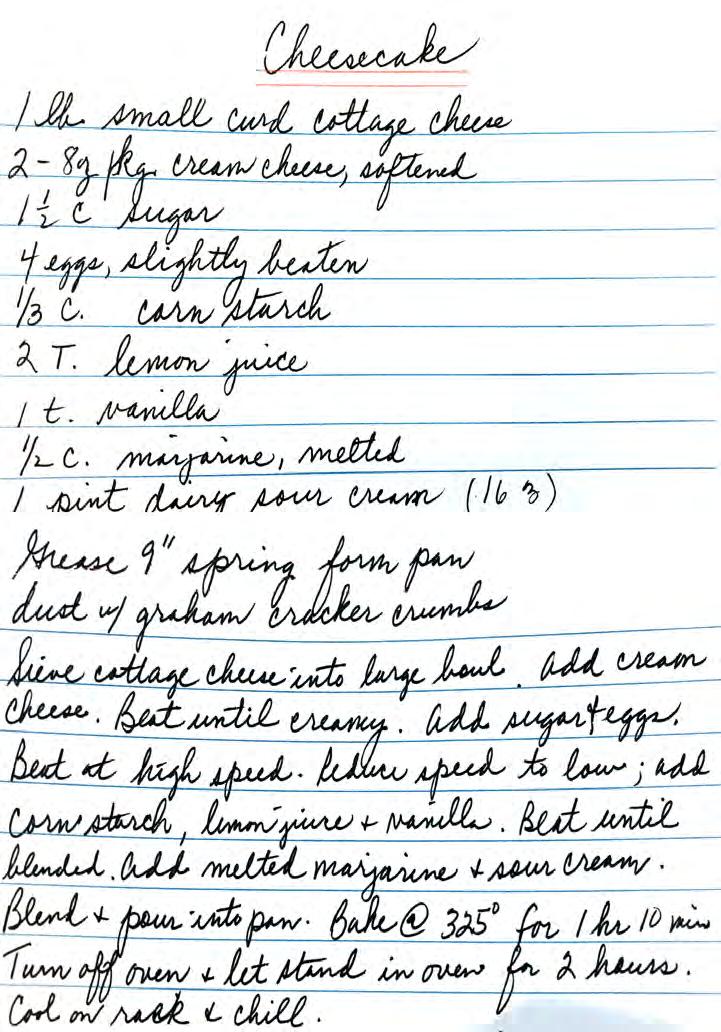 Cheesecake
1 lb. small curd cottage cheese
2 - 8oz pkg. cream cheese, softened
1 1/2 C sugar
4 eggs, slightly beaten
1/3 C. corn starch
2 T. lemon juice
1 t. vanilla
1/2 C. marjarine, melted
1 pint dairy sour cream (16 oz)
Grease 9" spring form pan
dust w/ graham cracker crumbs
Sieve cottage cheese into large bowl. Add cream
cheese. Beat until creamy. Add sugar & eggs.
Beat at high speed. Reduce speed to low; add
corn starch, lemon jiure + vanilla. Beat until
blended. Add melted marjarine + sour cream.
Blend + pour into pan. Bake @ 325° for 1 hr 10 min
Turn off oven + let stand in oven for 2 hours.
Cool on rack & chill.